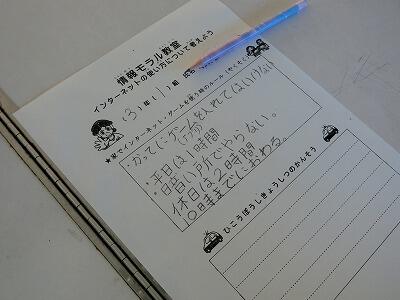 情報モラル教室
インターネットの使い方について考えよう
(3)年(1)組 氏名
★家でインターネット・ゲームを使う時のルール(やくそく)
・かってにゲームを入れてはいけない
・平日は1時間
・暗い所でやらない。
休日は2時間
10時までにおわる。
ひこうぼうしきょうしつのかんそう